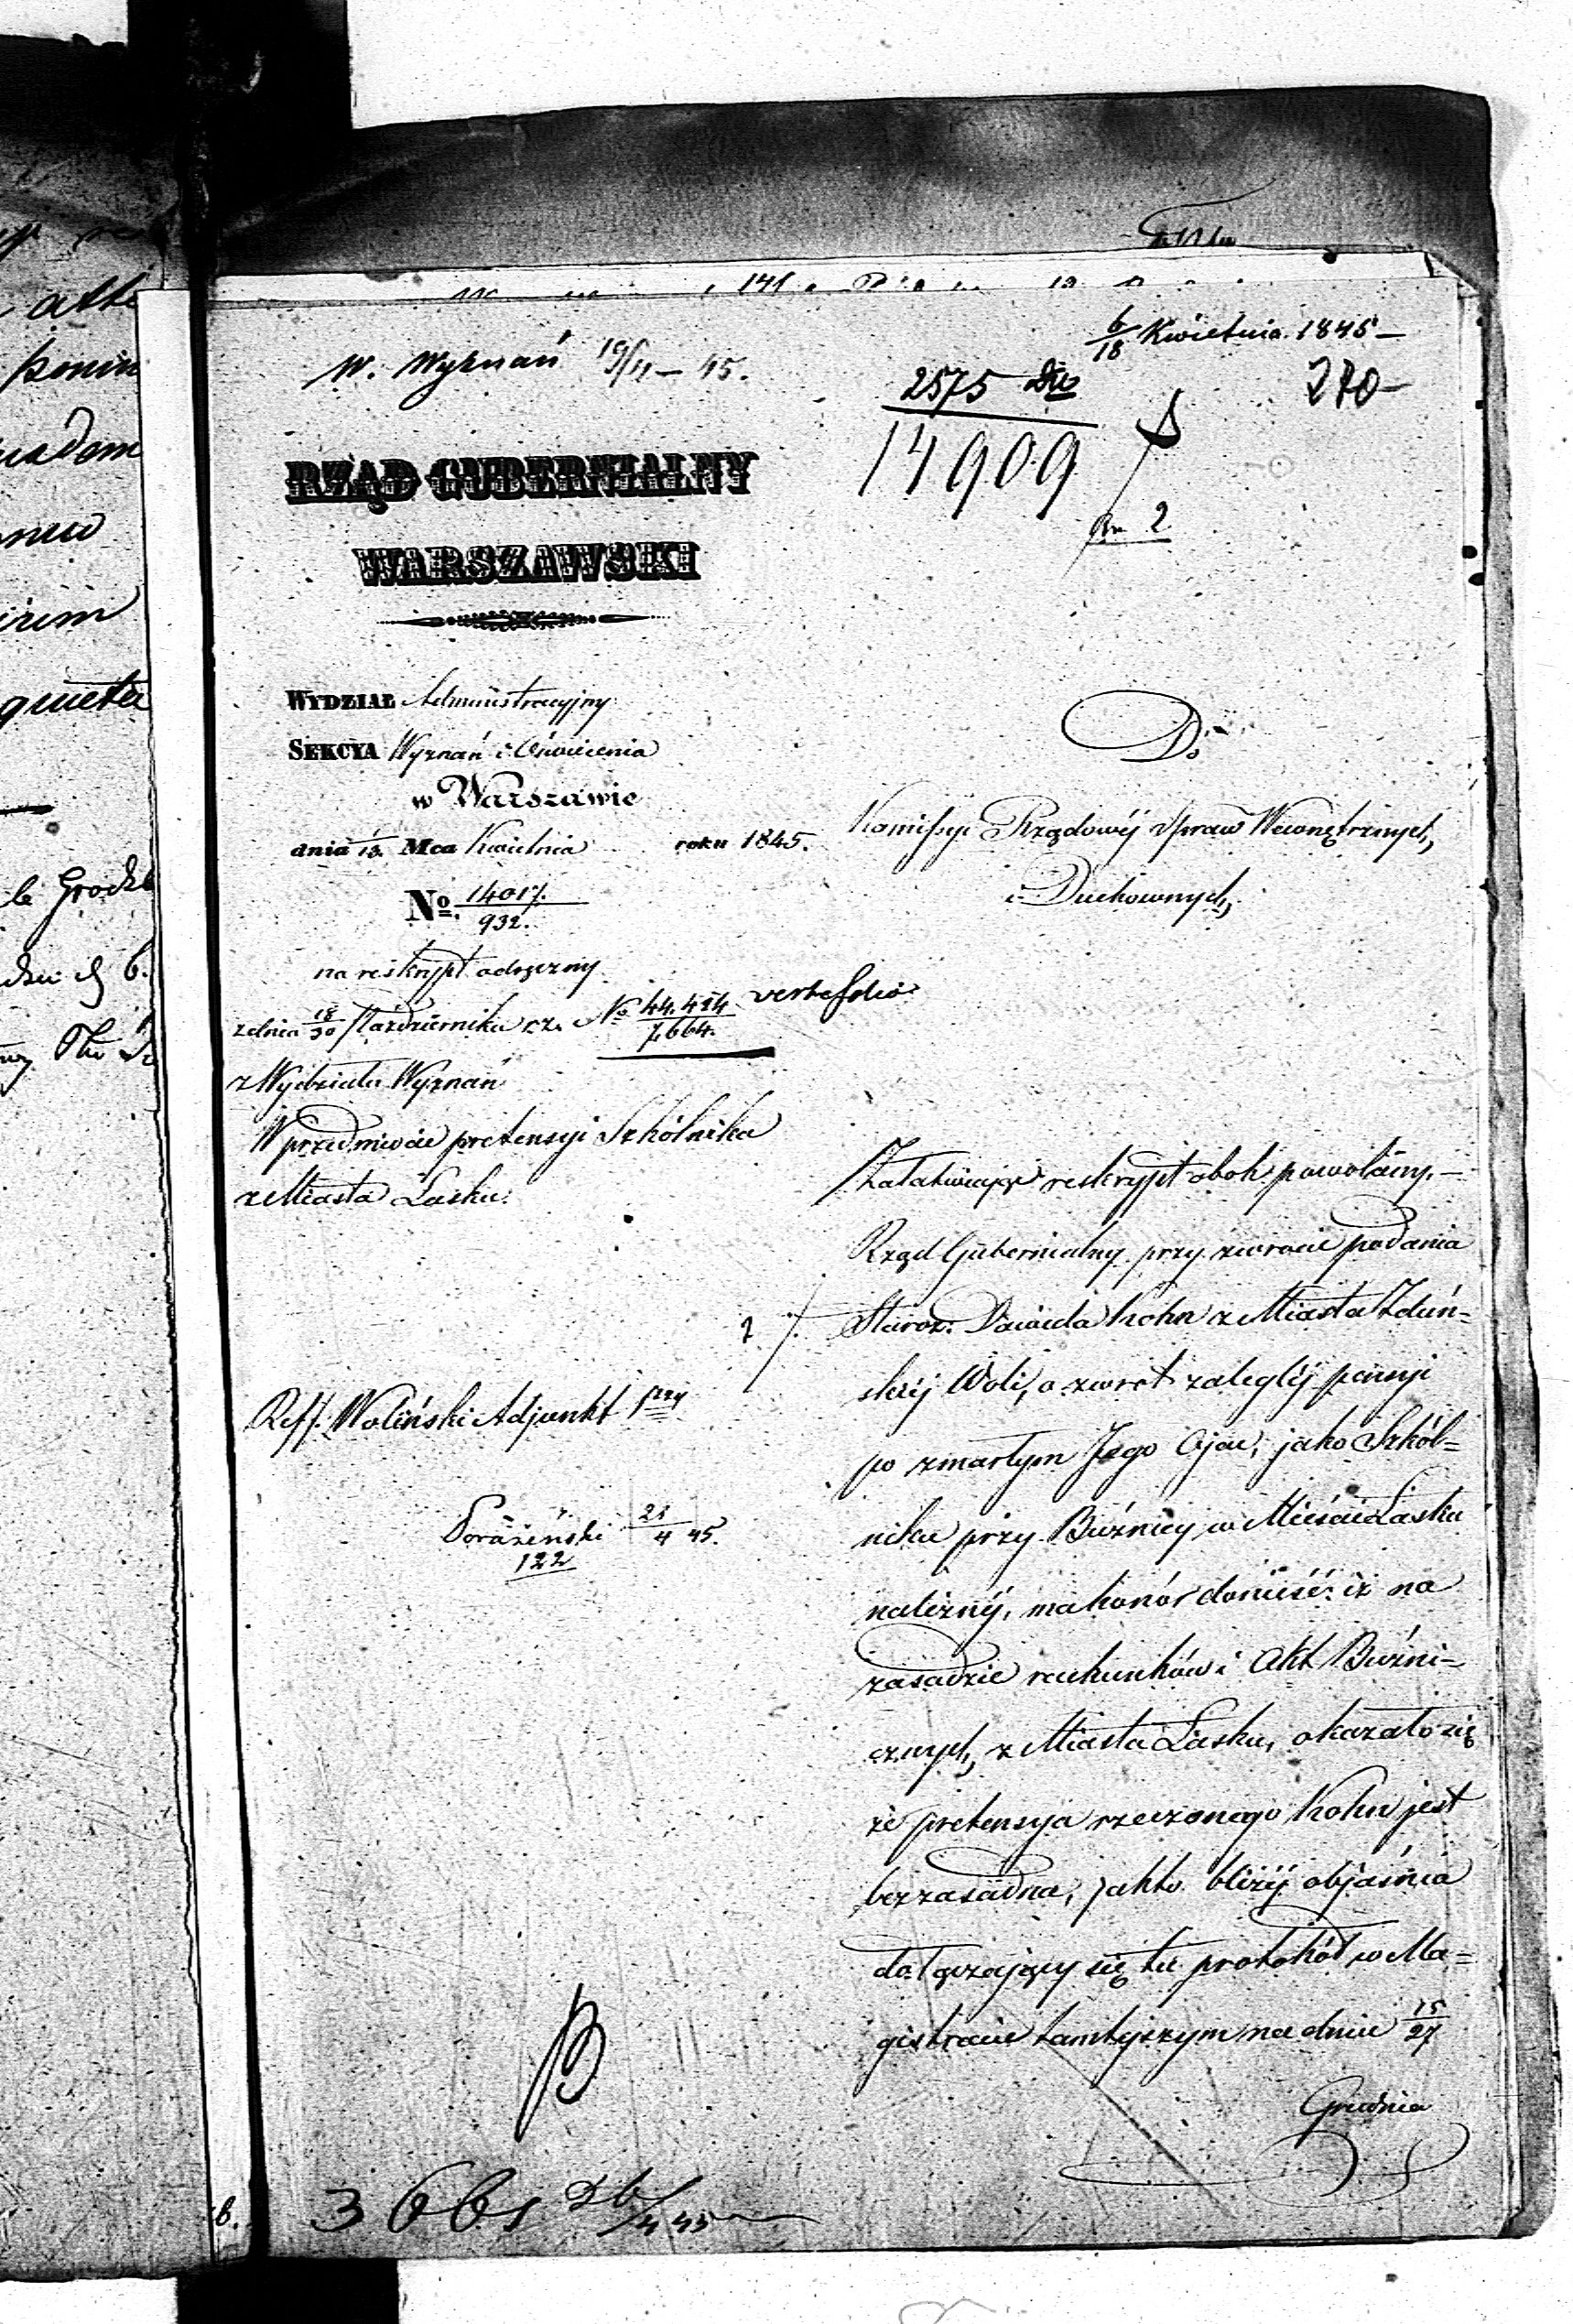 6/18 Kwietnia 1845 —
W. Wyznań 19/4 — 45.
2575
270 —
14909
2
RZĄD GUBERNIALNY
WARSZAWSKI
WYDZIAŁ Administracyjny
SEKCYA Wyznań i Oświecenia
w Warszawie
dnia 13. Mca Kwietnia roku 1845.
No. 14017./932.
na reskrypt odręczny
z dnia 18/30 Października r. z. No 44.424/7,664. verte folio
z Wydziału Wyznań
W przedmiocie pretensyi Szkólnika
z Miasta Łasku.
Reff. Woliński Adjunkt
Poraziński 21/4 45.
122
Do
Komissyi Rządowéj Spraw Wewnętrznych,
i Duchownych,
Załatwiając reskrypt obok powołany. —
Rząd Gubernialny przy zwrocie podania
2 /. Staroz. Dawida Kohn z Miasta Zduń=
skiéj Woli, o zwrot zaległéj pensyi
po zmarłym Jego Ojcu, jako Szkól=
niku przy Bóźnicy w Mieście Łasku
należnéj, ma honor donieść: iż na
zasadzie rachunków i Akt Bóźni=
cznych, z Miasta Łasku, okazało się
że pretensya rzeczonego Kohn jest
bezzasadna, jak to bliżéj objaśnia
dołączający się tu protokół w Ma=
gistracie tamtejszym na dniu 15/27
Grudnia
3661 26/4 45